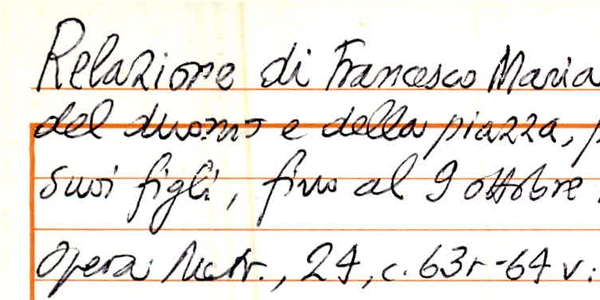 Relazione di Francesco Maria
del duomo e della piazza, p
suoi figli, fino al 9 ottobre
Opera Metr., 24, c. 63r-64v.